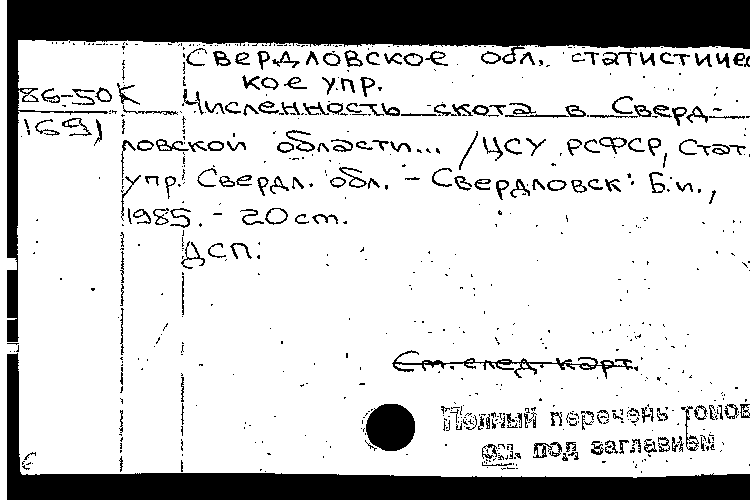 Свердловское обл. статистичес
кое упр.
86-50К
Численность скота в Сверд-
169)
ловской области... /ЦСУ РСФСР, Стат.
упр. Свердл. обл. – Свердловск: Б.и.,
1985. – 20 cm.
ДСП.
См. след. карт.
Полный перечень томов
см. под заглавием